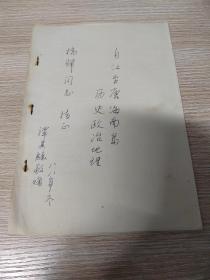 自汉至唐海南岛
历史政治地理
杨辉同志 指正
谭其骧敬赠
八八年冬